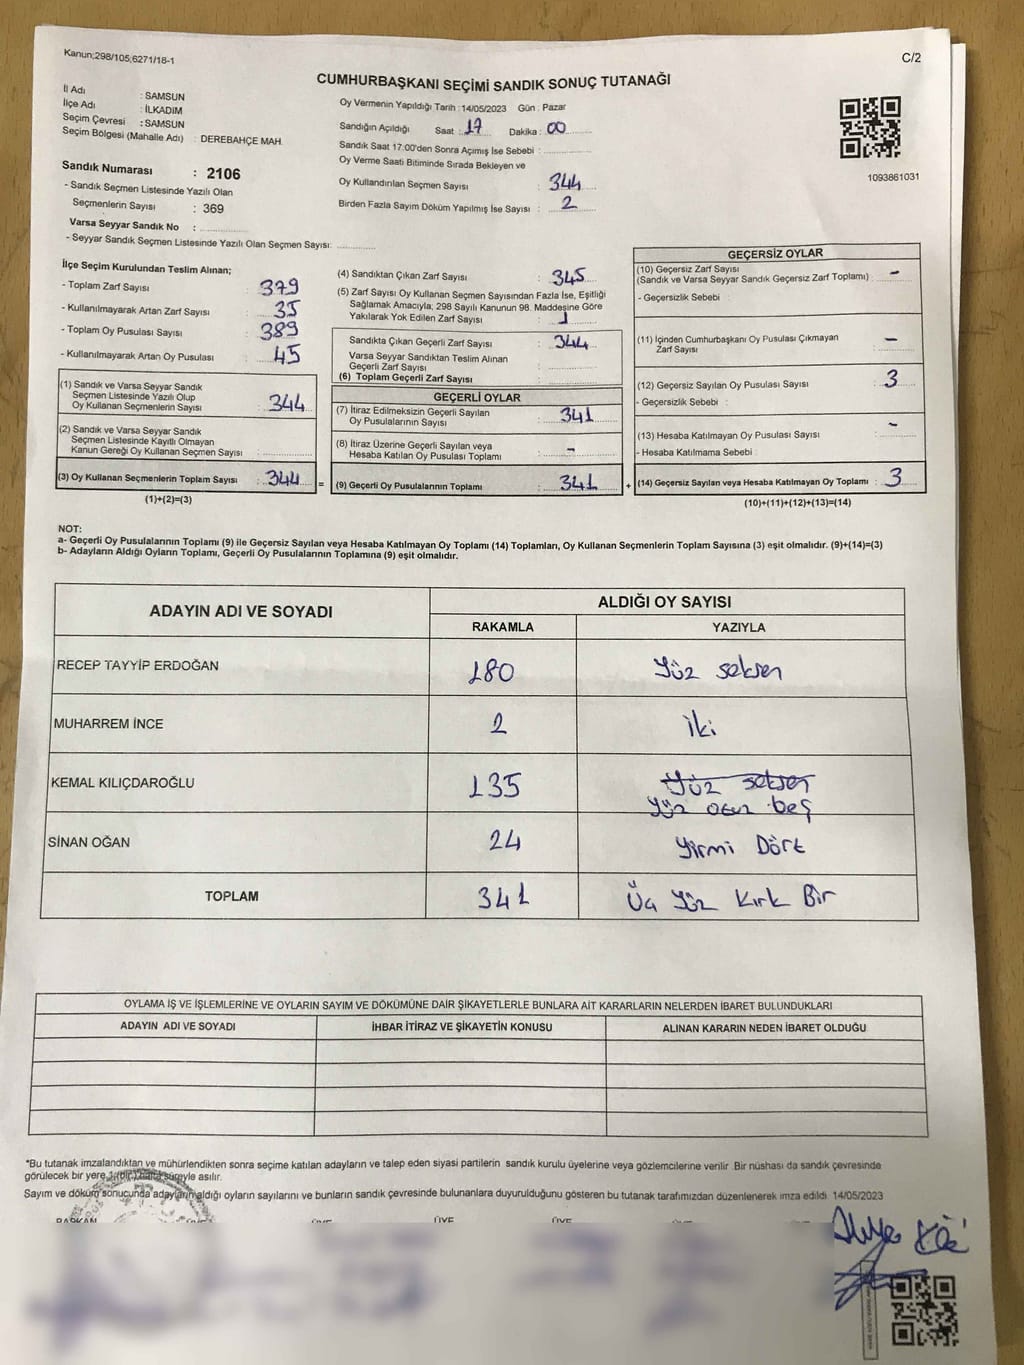 Kanun;298/105;6271/18-1
C/2
CUMHURBAŞKANI SEÇİMİ SANDIK SONUÇ TUTANAĞI
İl Adı : SAMSUN
İlçe Adı : İLKADIM
Seçim Çevresi : SAMSUN
Seçim Bölgesi (Mahalle Adı) : DEREBAHÇE MAH.
Sandık Numarası : 2106
- Sandık Seçmen Listesinde Yazılı Olan
Seçmenlerin Sayısı : 369
Varsa Seyyar Sandık No :
- Seyyar Sandık Seçmen Listesinde Yazılı Olan Seçmen Sayısı:
Oy Vermenin Yapıldığı Tarih :14/05/2023 Gün : Pazar
Sandığın Açıldığı Saat : 17 Dakika : 00
Sandık Saat 17:00'den Sonra Açımış İse Sebebi :
Oy Verme Saati Bitiminde Sırada Bekleyen ve
Oy Kullandırılan Seçmen Sayısı : 344
Birden Fazla Sayım Döküm Yapılmış İse Sayısı : 2
1093861031
İlçe Seçim Kurulundan Teslim Alınan;
- Toplam Zarf Sayısı : 379
- Kullanılmayarak Artan Zarf Sayısı : 35
- Toplam Oy Pusulası Sayısı : 389
- Kullanılmayarak Artan Oy Pusulası : 45
(1) Sandık ve Varsa Seyyar Sandık
Seçmen Listesinde Yazılı Olup
Oy Kullanan Seçmenlerin Sayısı : 344
(2) Sandık ve Varsa Seyyar Sandık
Seçmen Listesinde Kayıtlı Olmayan
Kanun Gereği Oy Kullanan Seçmen Sayısı :
(3) Oy Kullanan Seçmenlerin Toplam Sayısı : 344 =
(1)+(2)=(3)
(4) Sandıktan Çıkan Zarf Sayısı : 345
(5) Zarf Sayısı Oy Kullanan Seçmen Sayısından Fazla İse, Eşitliği
Sağlamak Amacıyla; 298 Sayılı Kanunun 98. Maddesine Göre
Yakılarak Yok Edilen Zarf Sayısı : 1
Sandıkta Çıkan Geçerli Zarf Sayısı : 344
Varsa Seyyar Sandıktan Teslim Alınan
Geçerli Zarf Sayısı :
(6) Toplam Geçerli Zarf Sayısı :
GEÇERLİ OYLAR
(7) İtiraz Edilmeksizin Geçerli Sayılan
Oy Pusulalarının Sayısı : 341
(8) İtiraz Üzerine Geçerli Sayılan veya
Hesaba Katılan Oy Pusulası Toplamı : -
(9) Geçerli Oy Pusulalarının Toplamı : 341 +
GEÇERSİZ OYLAR
(10) Geçersiz Zarf Sayısı
(Sandık ve Varsa Seyyar Sandık Geçersiz Zarf Toplamı) : -
- Geçersizlik Sebebi :
(11) İçinden Cumhurbaşkanı Oy Pusulası Çıkmayan
Zarf Sayısı : -
(12) Geçersiz Sayılan Oy Pusulası Sayısı : 3
- Geçersizlik Sebebi :
(13) Hesaba Katılmayan Oy Pusulası Sayısı : -
- Hesaba Katılmama Sebebi :
(14) Geçersiz Sayılan veya Hesaba Katılmayan Oy Toplamı : 3
(10)+(11)+(12)+(13)=(14)
NOT:
a- Geçerli Oy Pusulalarının Toplamı (9) ile Geçersiz Sayılan veya Hesaba Katılmayan Oy Toplamı (14) Toplamları, Oy Kullanan Seçmenlerin Toplam Sayısına (3) eşit olmalıdır. (9)+(14)=(3)
b- Adayların Aldığı Oyların Toplamı, Geçerli Oy Pusulalarının Toplamına (9) eşit olmalıdır.
ADAYIN ADI VE SOYADI ALDIĞI OY SAYISI
RAKAMLA YAZIYLA
RECEP TAYYİP ERDOĞAN 180 Yüz seksen
MUHARREM İNCE 2 İki
KEMAL KILIÇDAROĞLU 135 Yüz seksen
Yüz otuz beş
SİNAN OĞAN 24 Yirmi Dört
TOPLAM 341 Üç Yüz Kırk Bir
OYLAMA İŞ VE İŞLEMLERİNE VE OYLARIN SAYIM VE DÖKÜMÜNE DAİR ŞİKAYETLERLE BUNLARA AİT KARARLARIN NELERDEN İBARET BULUNDUKLARI
ADAYIN ADI VE SOYADI İHBAR İTİRAZ VE ŞİKAYETİN KONUSU ALINAN KARARIN NEDEN İBARET OLDUĞU
*Bu tutanak imzalandıktan ve mühürlendikten sonra seçime katılan adayların ve talep eden siyasi partilerin sandık kurulu üyelerine veya gözlemcilerine verilir. Bir nüshası da sandık çevresinde
görülecek bir yere 1 (bir) hafta süreyle asılır.
Sayım ve döküm sonucunda adayların aldığı oyların sayılarını ve bunların sandık çevresinde bulunanlara duyurulduğunu gösteren bu tutanak tarafımızdan düzenlenerek imza edildi. 14/05/2023
BAŞKAN ÜYE ÜYE ÜYE ÜYE ÜYE